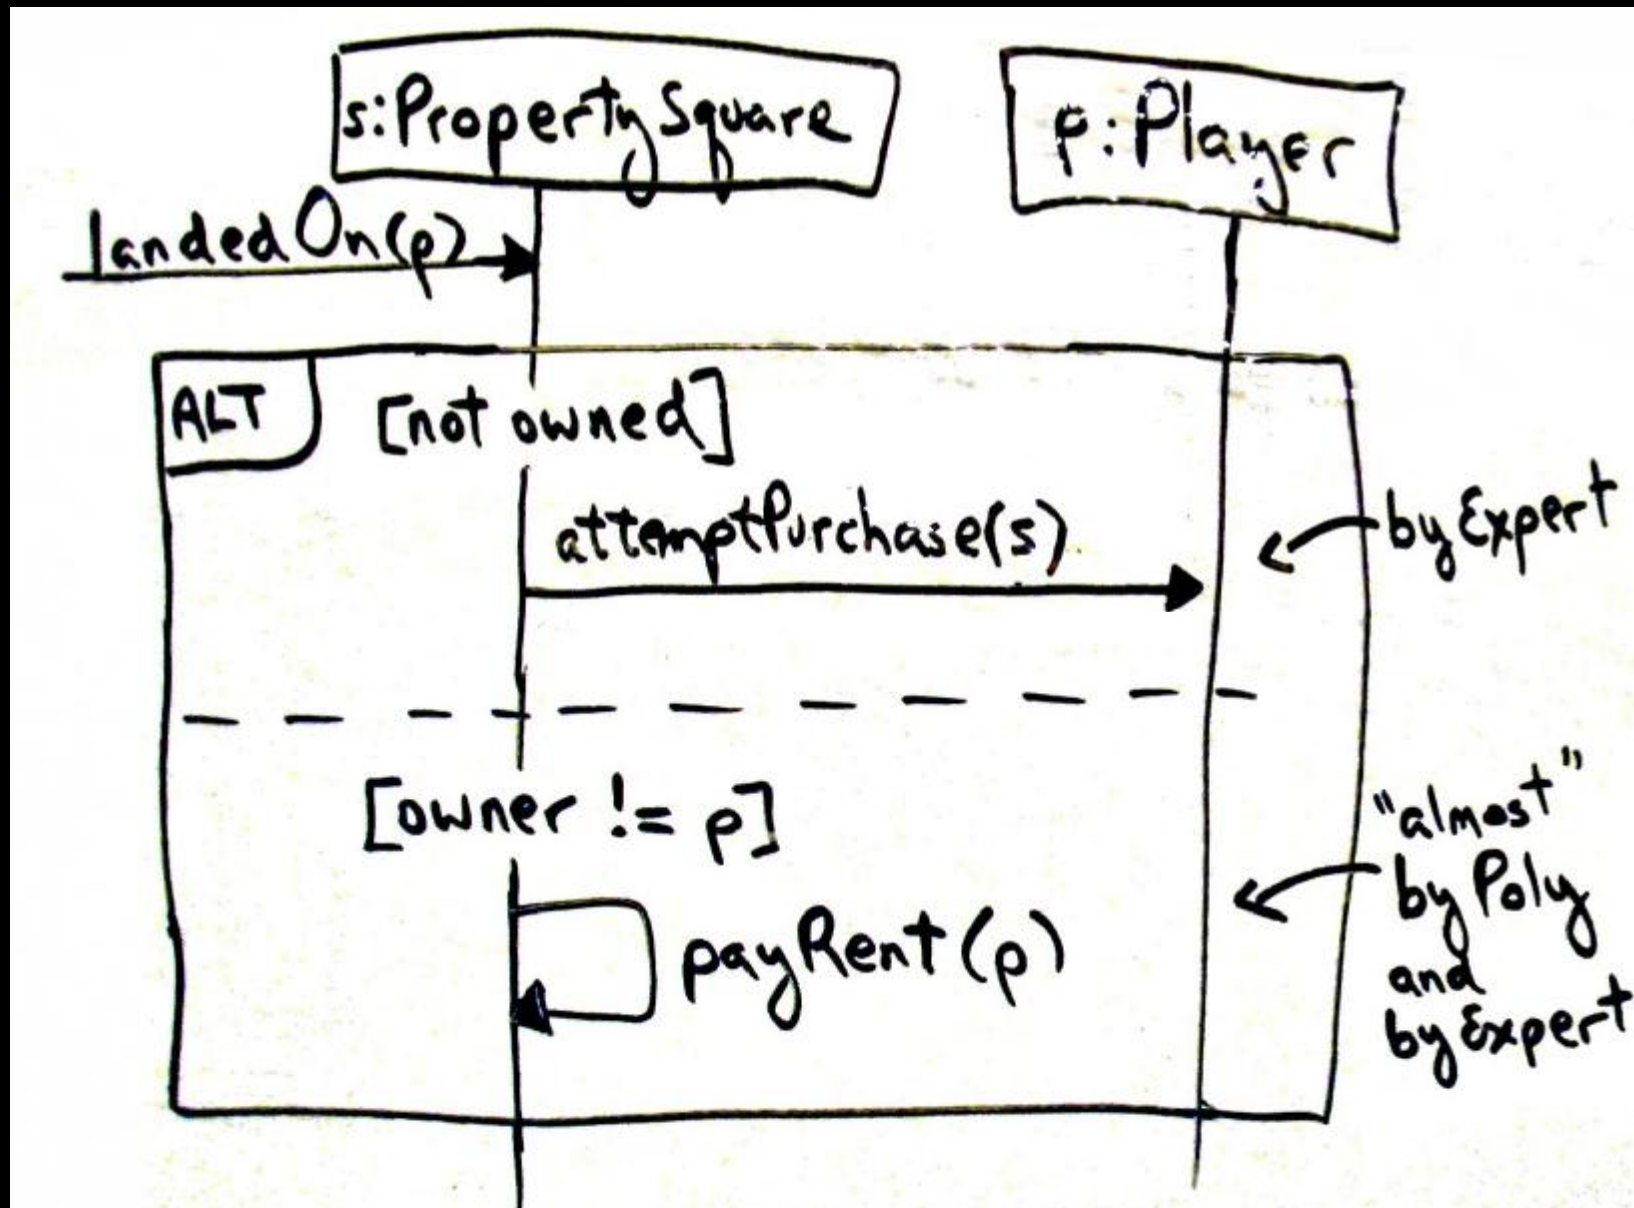 s:PropertySquare
p:Player
landedOn(p)
ALT
[not owned]
attemptPurchase(s)
by Expert
[owner != p]
"almost"
by Poly
and
by Expert
payRent(p)